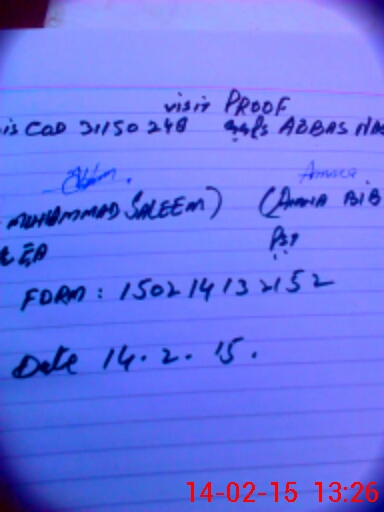 visit PROOF
is COD 31150248 ABBAS NA
Amna
MUHAMMAD SALEEM) (AMNA BIB
EA PST
FORM : 150214132152
Date 14.2.15.
14-02-15 13:26